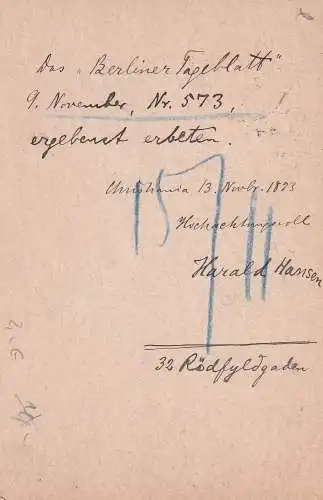 Das „Berliner Tageblatt"
9. November, Nr. 573,
ergebenst erbeten.
Christiania 13. Novbr. 1893
Hochachtungsvoll
Harald Hansen
15/11
32 Rödfyldgaden